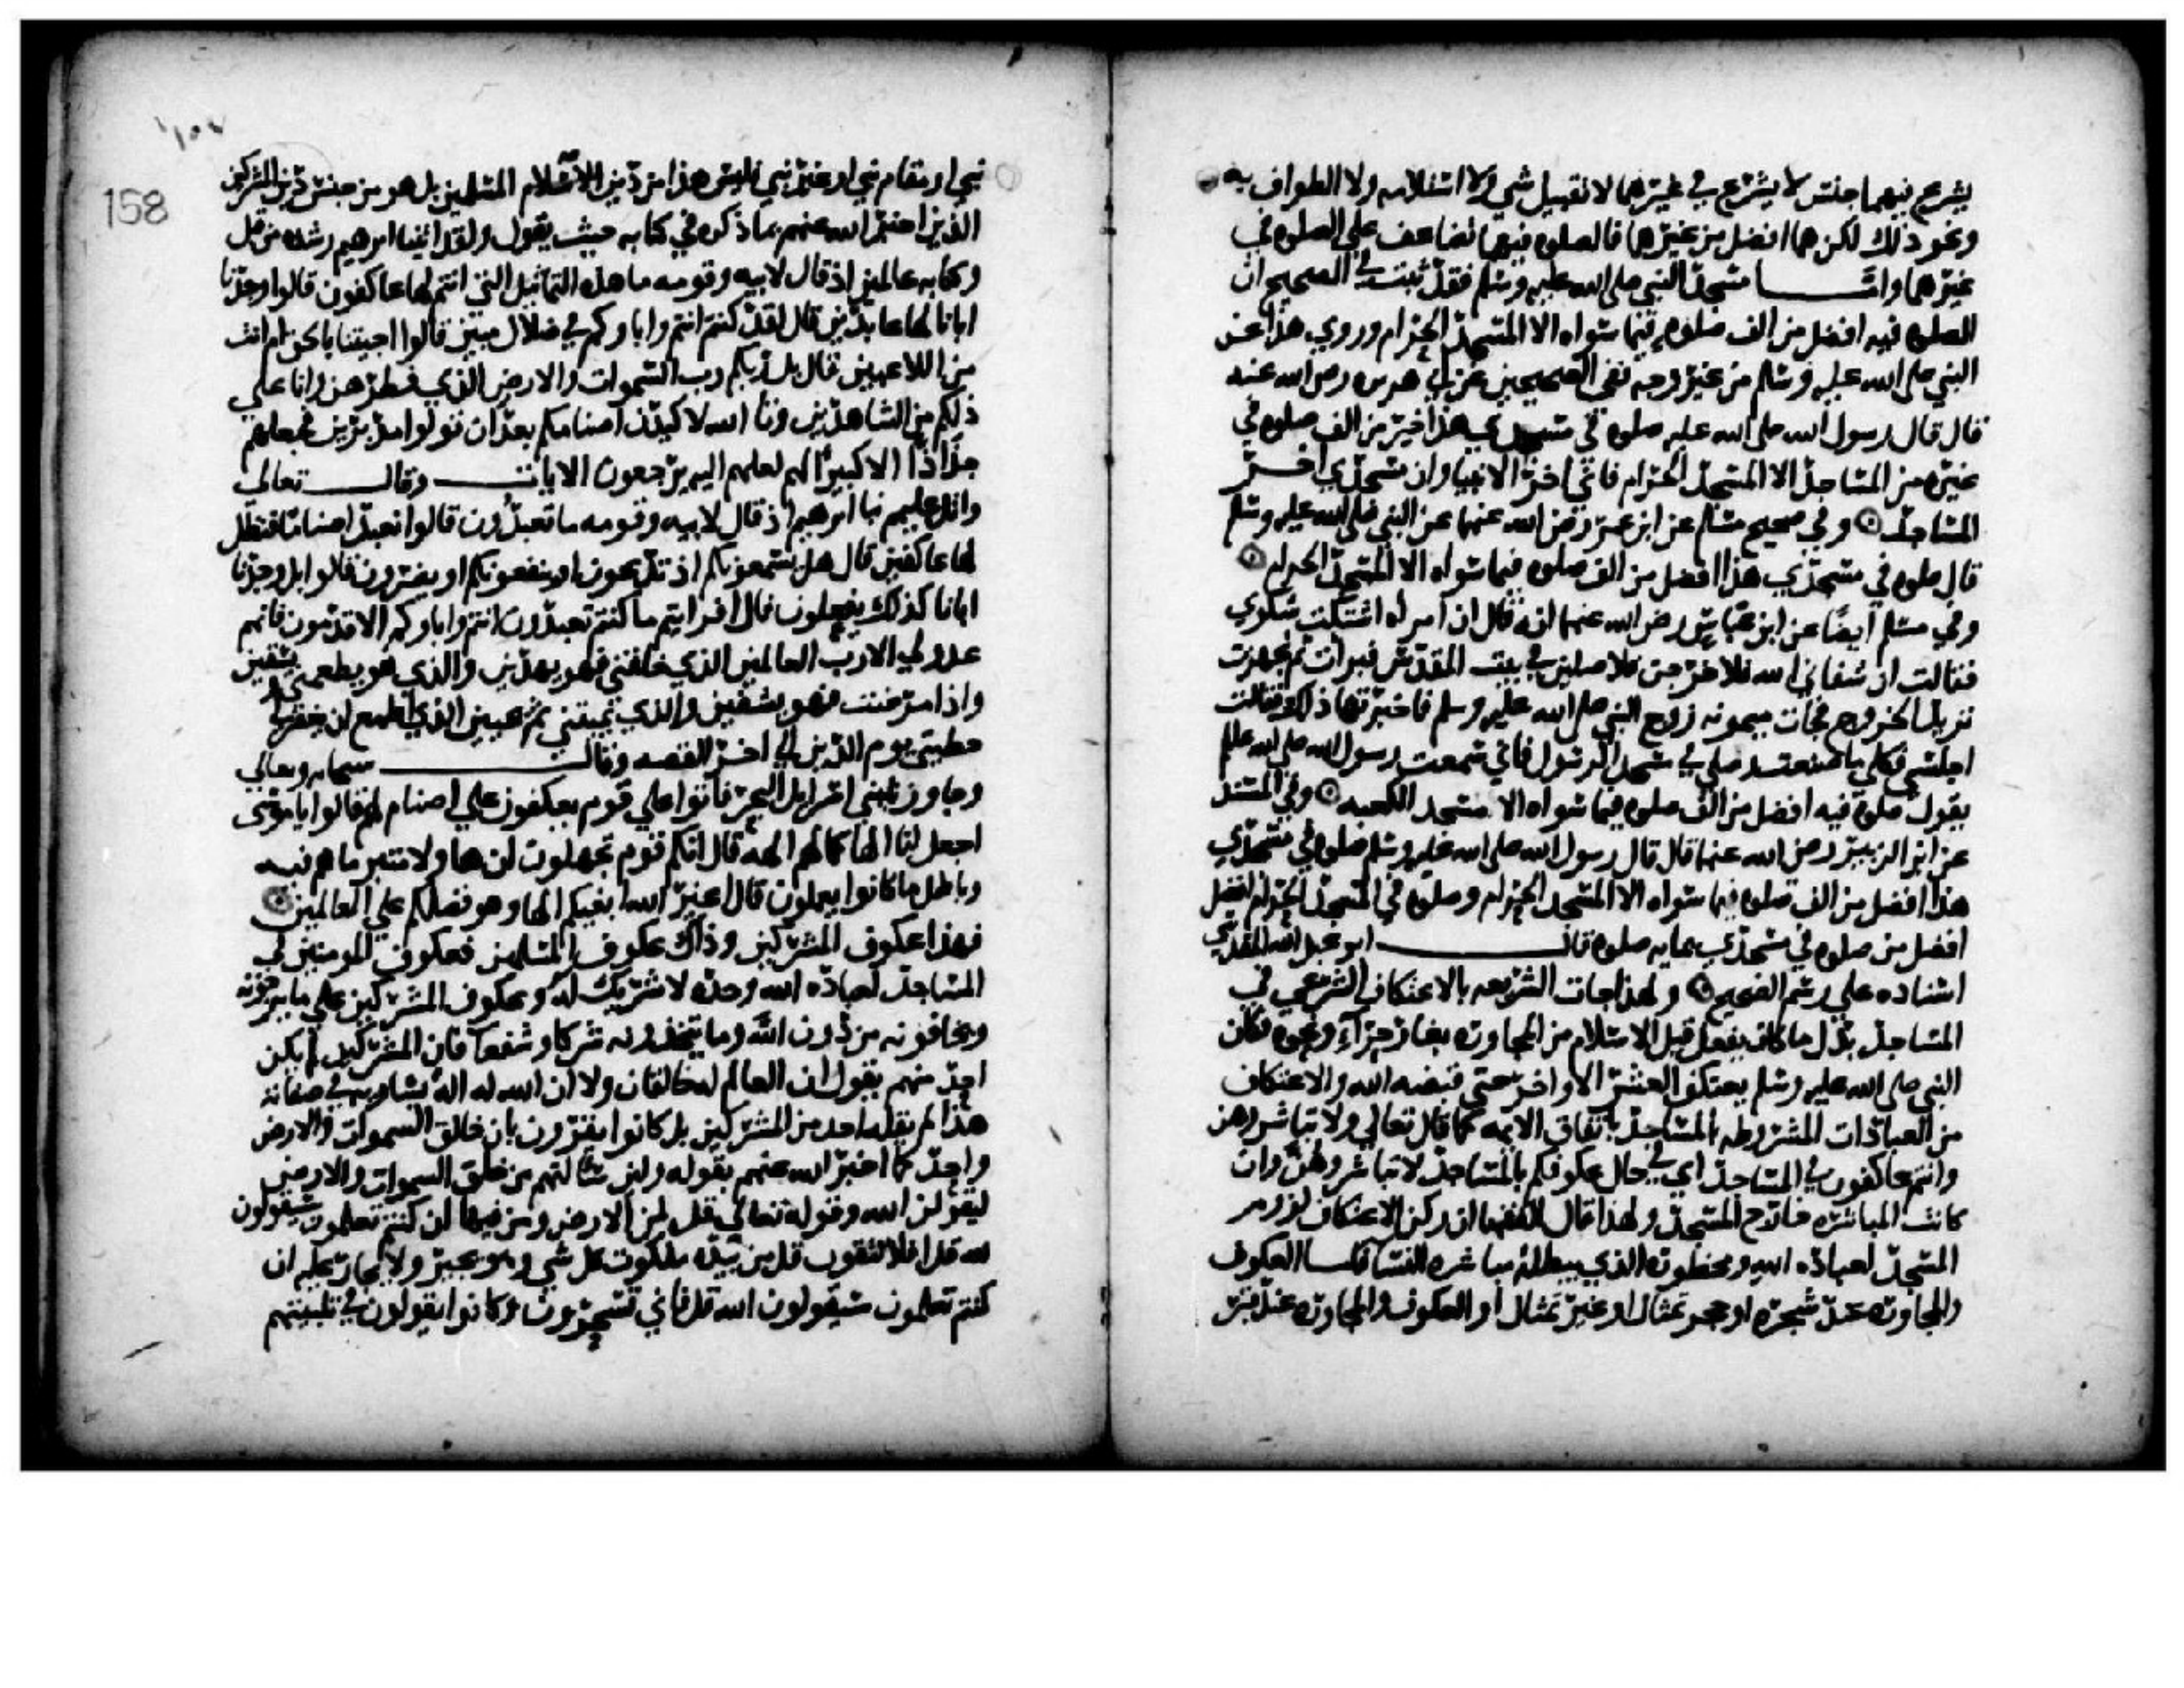 يشرع فيهما جنس لا يشرع في غيرهما لا تقبيل شي ولا استلامه ولا الطواف به
ونحو ذلك لكن هما افضل من غيرهما فالصلوه فيهما تضاعف على الصلوه في
غيرهما واما مسجد النبي صلى الله عليه وسلم فقد ثبت في الصحيح ان
الصلوه فيه افضل من الف صلوه فيما سواه الا المسجد الحرام وروي هذا عن
النبي صلى الله عليه وسلم من غير وجه ففي الصحيحين عن ابي هريره رضي الله عنه
قال قال رسول الله صلى الله عليه صلوه في مسجدي هذا خير من الف صلوه في
غيره من المساجد الا المسجد الحرام فاني اخر الانبيا وان مسجدي اخر
المساجد وفي صحيح مسلم عن ابن عمر رضي الله عنهما عن النبي صلى الله عليه وسلم
قال صلوه في مسجدي هذا افضل من الف صلوه فيما سواه الا المسجد الحرام
وفي مسلم ايضا عن ابن عباس رضي الله عنهما انه قال ان امراه اشتكت شكوي
فقالت ان شفاني الله فلاخرجن فلاصلين في بيت المقدس فبرات ثم تجهزت
تريد الخروج فجات ميمونه زوج النبي صلى الله عليه وسلم فاخبرتها ذلك فقالت
اجلسي فكلي ما صنعت وصلي في مسجد الرسول فاني سمعت رسول الله صلى الله عليه
يقول صلوة فيه افضل من الف صلوه فيما سواه الا مسجد الكعبه وفي المسند
عن ابن الزبير رضي الله عنهما قال قال رسول الله صلى الله عليه وسلم صلوه في مسجدي
هذا افضل من الف صلوه فيما سواه الا المسجد الحرام وصلوه في المسجد الحرام افضل
افضل من صلوه في مسجدي بمايه صلوه قال ابو عبد الله المقدسي
اسناده على رسم الصحيح ولهذا جات الشريعه بالاعتكاف الشرعي في
المساجد بدل ما كان يفعل قبل الاسلام من المجاوره بغار حراء ونحوه فكان
النبي صلى الله عليه وسلم يعتكف العشر الاواخر حتى قبضه الله والاعتكاف
من العبادات المشروطه بالمساجد باتفاق الايمه كما قال تعالي ولا تباشروهن
وانتم عاكفون في المساجد اي في حال عكوفكم بالمساجد لا تباشروهن وان
كانت المباشره خارج المسجد ولهذا قال الفقها ان ركن الاعتكاف لزوم
المسجد لعباده الله ومحظوره الذي يبطله مباشره النسا فاما العكوف
والمجاوره عند شجره او حجر تمثال او غير تمثال او العكوف والمجاوره عند قبر
١٥٧
158
نبي او مقام نبي او غير نبي فليس هذا من دين الاسلام المسلمين بل هو من جنس دين المشركين
الذين اخبر الله عنهم بما ذكره في كتابه حيث يقول ولقد اتينا ابرهيم رشده من قبل
وكنا به عالمين اذ قال لابيه وقومه ما هذه التماثيل التي انتم لها عاكفون قالوا وجدنا
ابانا لها عابدين قال لقد كنتم انتم واباوكم في ضلال مبين قالوا اجيتنا بالحق ام انت
من اللاعبين قال بل ربكم رب السموات والارض الذي فطرهن وانا على
ذلكم من الشاهدين وتا الله لاكيدن اصنامكم بعد ان تولوا مدبرين فجعلهم
جذاذا الا كبيرا لهم لعلهم اليه يرجعون الايات وقال تعالى
واتل عليهم نبا ابرهيم اذ قال لابيه وقومه ما تعبدون قالوا نعبد اصناما فنظل
لها عاكفين قال هل يسمعونكم اذ تدعون او ينفعونكم او يضرون قالوا بل وجدنا
ابانا كذلك يفعلون قال افرايتم ما كنتم تعبدون انتم واباوكم الاقدمون فانهم
عدو لي الا رب العالمين الذي خلقني فهو يهدين والذي هو يطعمني ويسقين
واذا مرضت فهو يشفين والذي يميتني ثم يحيين والذي اطمع ان يغفر لي
خطيتي يوم الدين الي اخر القصه وقال سبحانه وتعالي
وجاوزنا ببني اسرايل البحر فاتوا علي قوم يعكفون علي اصنام لهم قالوا يا موسى
اجعل لنا الها كما لهم الهة قال انكم قوم تجهلون ان هاولا متبر ما هم فيه
وباطل ما كانوا يعملون قال اغير الله ابغيكم الها وهو فضلكم على العالمين
فهذا عكوف المشركين وذاك عكوف المسلمين فعكوف المومنين في
المساجد لعباده الله وحده لا شريك له وعكوف المشركين على ما يرجونه
ويخافونه من دون الله وما يتخذونه شركا وشفعا فان المشركين لم يكن
احد منهم يقول ان العالم له خالقان ولا ان الله له اله يساويه في صفاته
هذا لم يقله احد من المشركين بل كانوا يقرون بان خالق السموات والارض
واحد كما اخبر الله عنهم بقوله ولين سالتهم من خلق السموات والارض
ليقولن الله وقوله تعالي قل لمن الارض ومن فيها ان كنتم تعلمون سيقولون
لله قل افلا تتقون قل من بيده ملكوت كل شي وهو يجير ولا يجار عليه ان
كنتم تعلمون سيقولون الله قل فاني تسحرون وكانوا يقولون في تلبيتهم